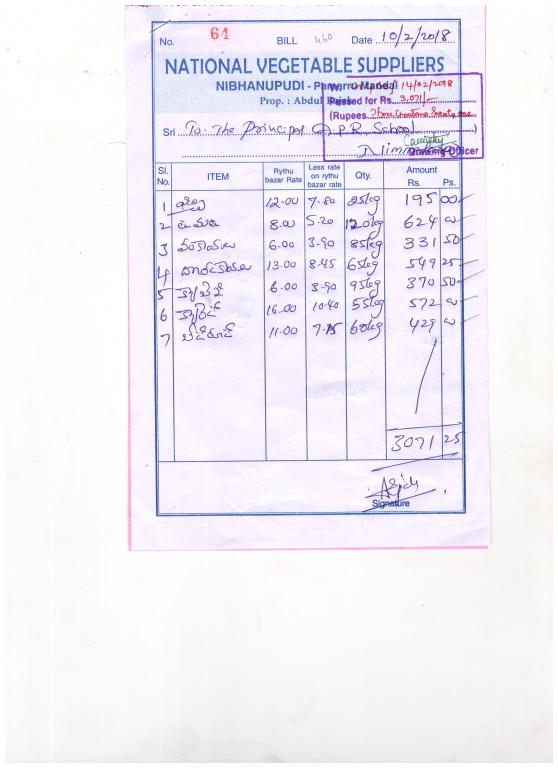 No. 64 BILL 460 Date 10/2/2018
NATIONAL VEGETABLE SUPPLIERS
NIBHANUPUDI - Pamarru Mandal
Prop. : Abdul
14/02/2018
Passed for Rs. 3,071/-
(Rupees )
Sri To. The Principal A.P.R School
Nimm
Drawing Officer
Sl. No. ITEM Rythu bazar Rate Less rate on rythu bazar rate Qty. Amount Rs. Ps.
1 12.00 7.80 25kg 195 00
2 టమాట 8.00 5.20 120kg 624 00
3 వంకాయలు 6.00 3.90 85kg 331 50
4 దొండకాయలు 13.00 8.45 65kg 549 25
5 6.00 3.90 95kg 370 50
6 16.00 10.40 55kg 572 00
7 బీట్రూట్ 11.00 7.15 60kg 429 00
3071 25
Signature